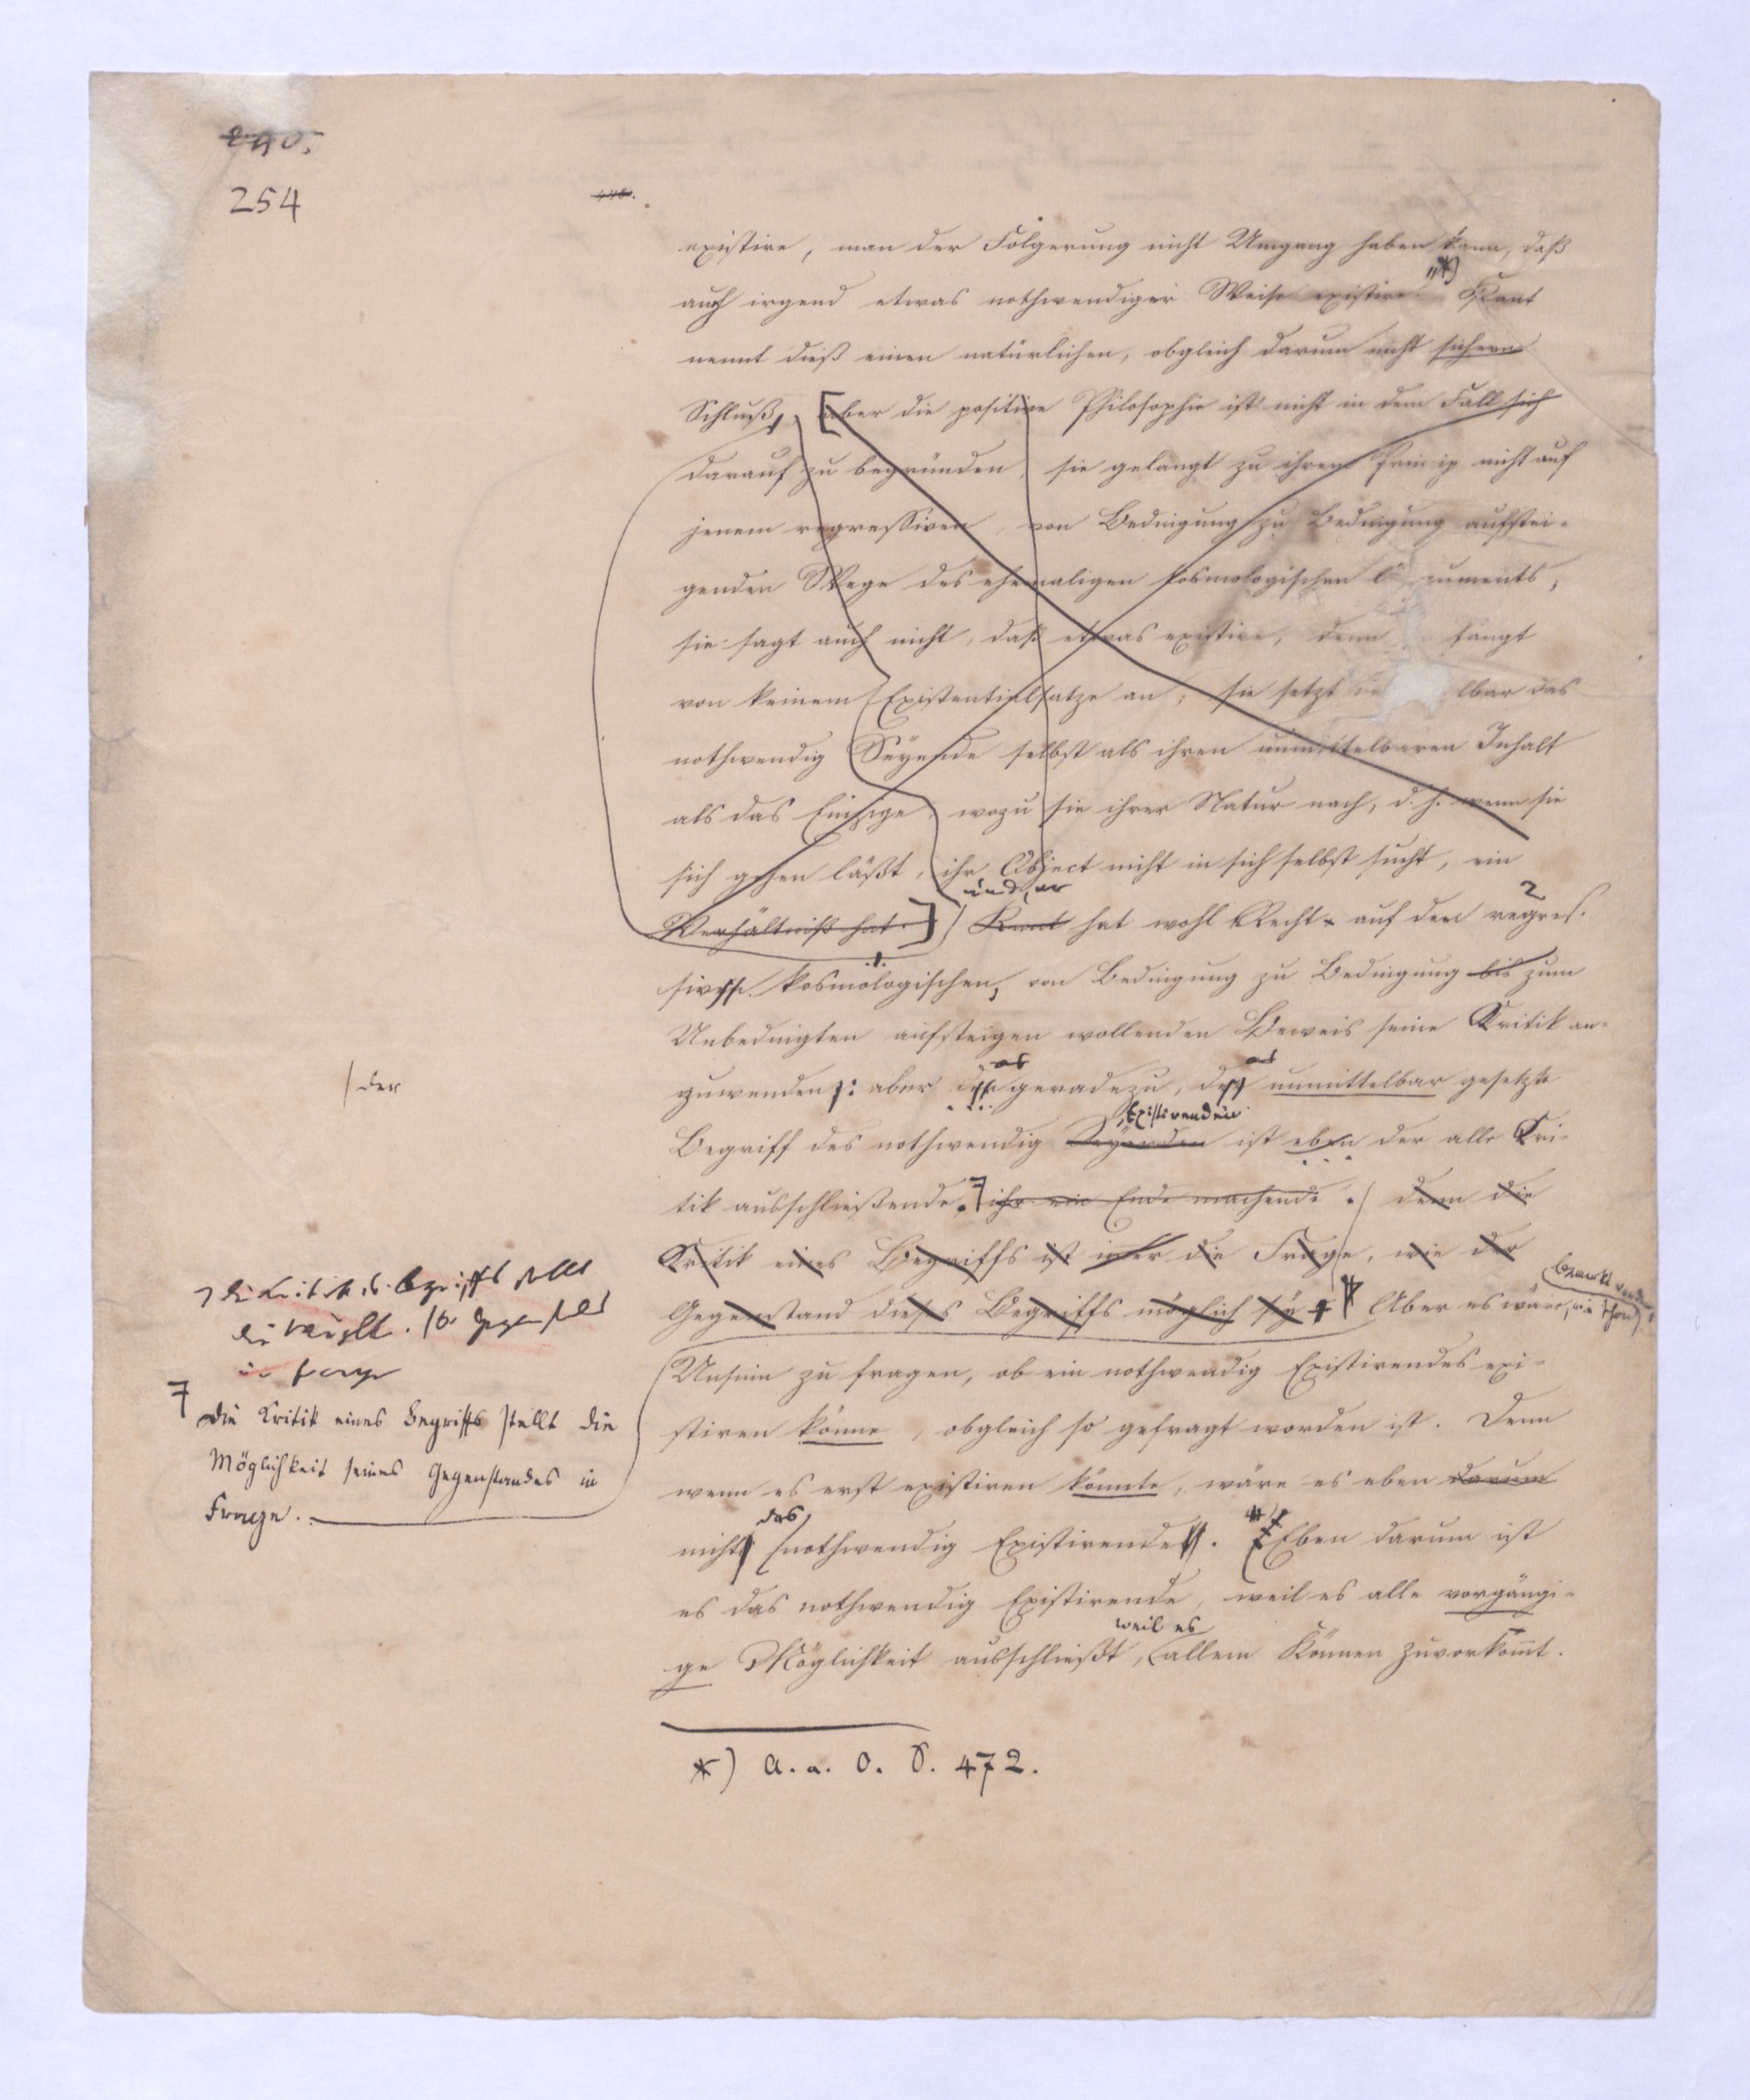 240.
254
existire, man der Folgerung nicht Umgang haben kann, daß
auch irgend etwas nothwendiger Weise existire "*) Kant
nennt dieß einen natürlichen, obgleich darum nicht sichern
Schluß, aber die positive Philosophie ist nicht in dem Fall sich
darauf zu begründen, sie gelangt zu ihrem Princip nicht auf
jenem regressiven, von Bedingung zu Bedingung aufstei-
genden Wege des ehemaligen kosmologischen uments,
sie sagt auch nicht, daß etwas existire, denn fängt
von keinem Existentialsatze an; sie setzt lbar das
nothwendig Seyende selbst als ihren unmittelbaren Inhalt
als das Einzige, wozu sie ihrer Natur nach, d. h. wenn sie
sich gehen läßt, ihr Object nicht in sich selbst sucht, ein
und er
Verhältniß hat.] Kant hat wohl Recht auf den regres-
siven kosmologischen, von Bedingung zu Bedingung bis zum
Unbedingten aufsteigen wollenden Beweis seine Kritik an-
zuwenden: aber geradezu, unmittelbar gesetzte
/der
Existirenden
Begriff des nothwendig Seyenden ist eben der alle Kri-
tik ausschließende. ihr ein Ende machende. denn die
Kritik eines Begriffs ist immer die Frage, wie der
bemerkt worden
Gegenstand dieses Begriffs möglich sey Aber es wäre, wie schon
Unsinn zu fragen, ob ein nothwendig Existirendes exi-
stiren könne, obgleich so gefragt worden ist. Denn
wenn es erst existiren könnte, wäre es eben darum
das
nicht nothwendig Existirende. Eben darum ist
es das nothwendig Existirende, weil es alle vorgängi-
weil es
ge Möglichkeit ausschließt, allem Können zuvorkommt.
*) A. a. O. S. 472.
die Kritik d. Begriffs stellt
die Möglk. s. Gegenstdes
in Frage
die Kritik eines Begriffs stellt die
Möglichkeit seines Gegenstandes in
Frage.